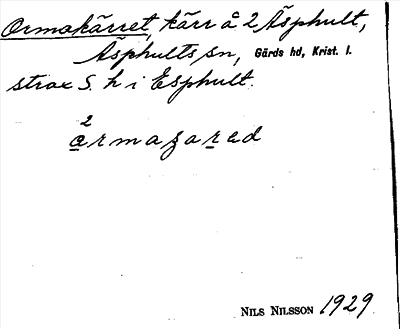 Ormakärret, kärr å 2 Äsphult,
Äsphults sn, Gärds hd, Krist. l.
strax S. h i Esphult.
2
armazarad
NILS NILSSON 1929